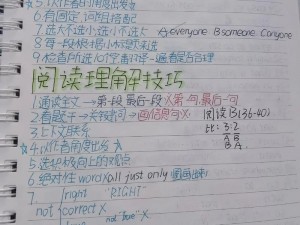 6.有固定词组搭配
7.选大不选小,选小不选大 ☆everyone Bsomeone Canyone
8.每一段根据小标题来选
9.检查所选10个空看一遍是否合理
阅读理解技巧
1.通读全文→第一段 最后一段 第一句,最后一句
2.看题干→关键词→画信息句 阅读B(36-40)
3.上下文联系 比:3:2
A B
4.从作者角度出发 B A
5.选积极向上的观点
6.绝对性words X all just only
7.
right "RIGHT"
not correct X
not "true" X